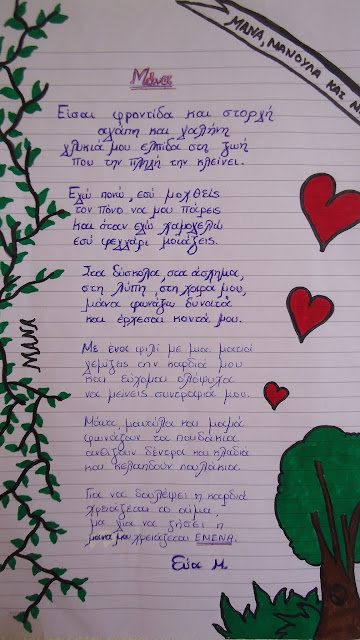 ΜΑΝΑ, ΜΑΝΟΥΛΑ ΚΑΙ
Μάνα
Είσαι φροντίδα και στοργή
αγάπη και γαλήνη
γλυκιά μου ελπίδα στη ζωή
που την πληγή την κλείνει.
Εγώ πονώ, εσύ μοχθείς
τον πόνο να μου πάρεις
και όταν εγώ χαμογελώ
εσύ φεγγάρι μοιάζεις.
Στα δύσκολα, στα άσχημα,
στη λύπη, στη χαρά μου,
μάνα φωνάζω δυνατά
και έρχεσαι κοντά μου.
Με ένα φιλί με μια ματιά
γεμίζεις την καρδιά μου
και εύχομαι ολόψυχα
να μείνεις συντροφιά μου.
Μάνα, μανούλα και μαμά
φωνάζουν τα παιδάκια
ανθίζουν δέντρα και κλαδιά
και κελαηδούν πουλάκια.
Για να δουλέψει η καρδιά
χρειάζεται το αίμα,
μα για να ζήσει η
μάνα μου χρειάζεται ΕΜΕΝΑ.
Εύα Μ.
ΜΑΝΑ